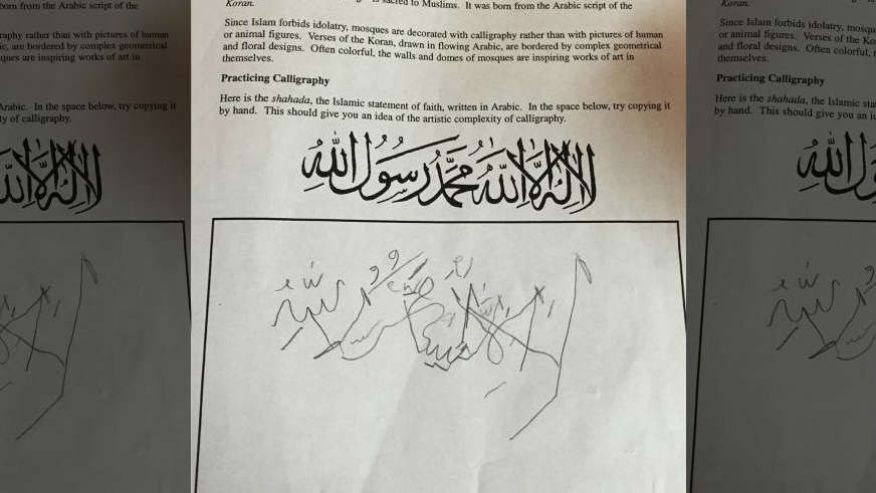 Koran. is sacred to Muslims. It was born from the Arabic script of the
Since Islam forbids idolatry, mosques are decorated with calligraphy rather than with pictures of human
or animal figures. Verses of the Koran, drawn in flowing Arabic, are bordered by complex geometrical
and floral designs. Often colorful, the walls and domes of mosques are inspiring works of art in
themselves.
Practicing Calligraphy
Here is the shahada, the Islamic statement of faith, written in Arabic. In the space below, try copying it
by hand. This should give you an idea of the artistic complexity of calligraphy.
لا إله إلا الله محمد رسول الله